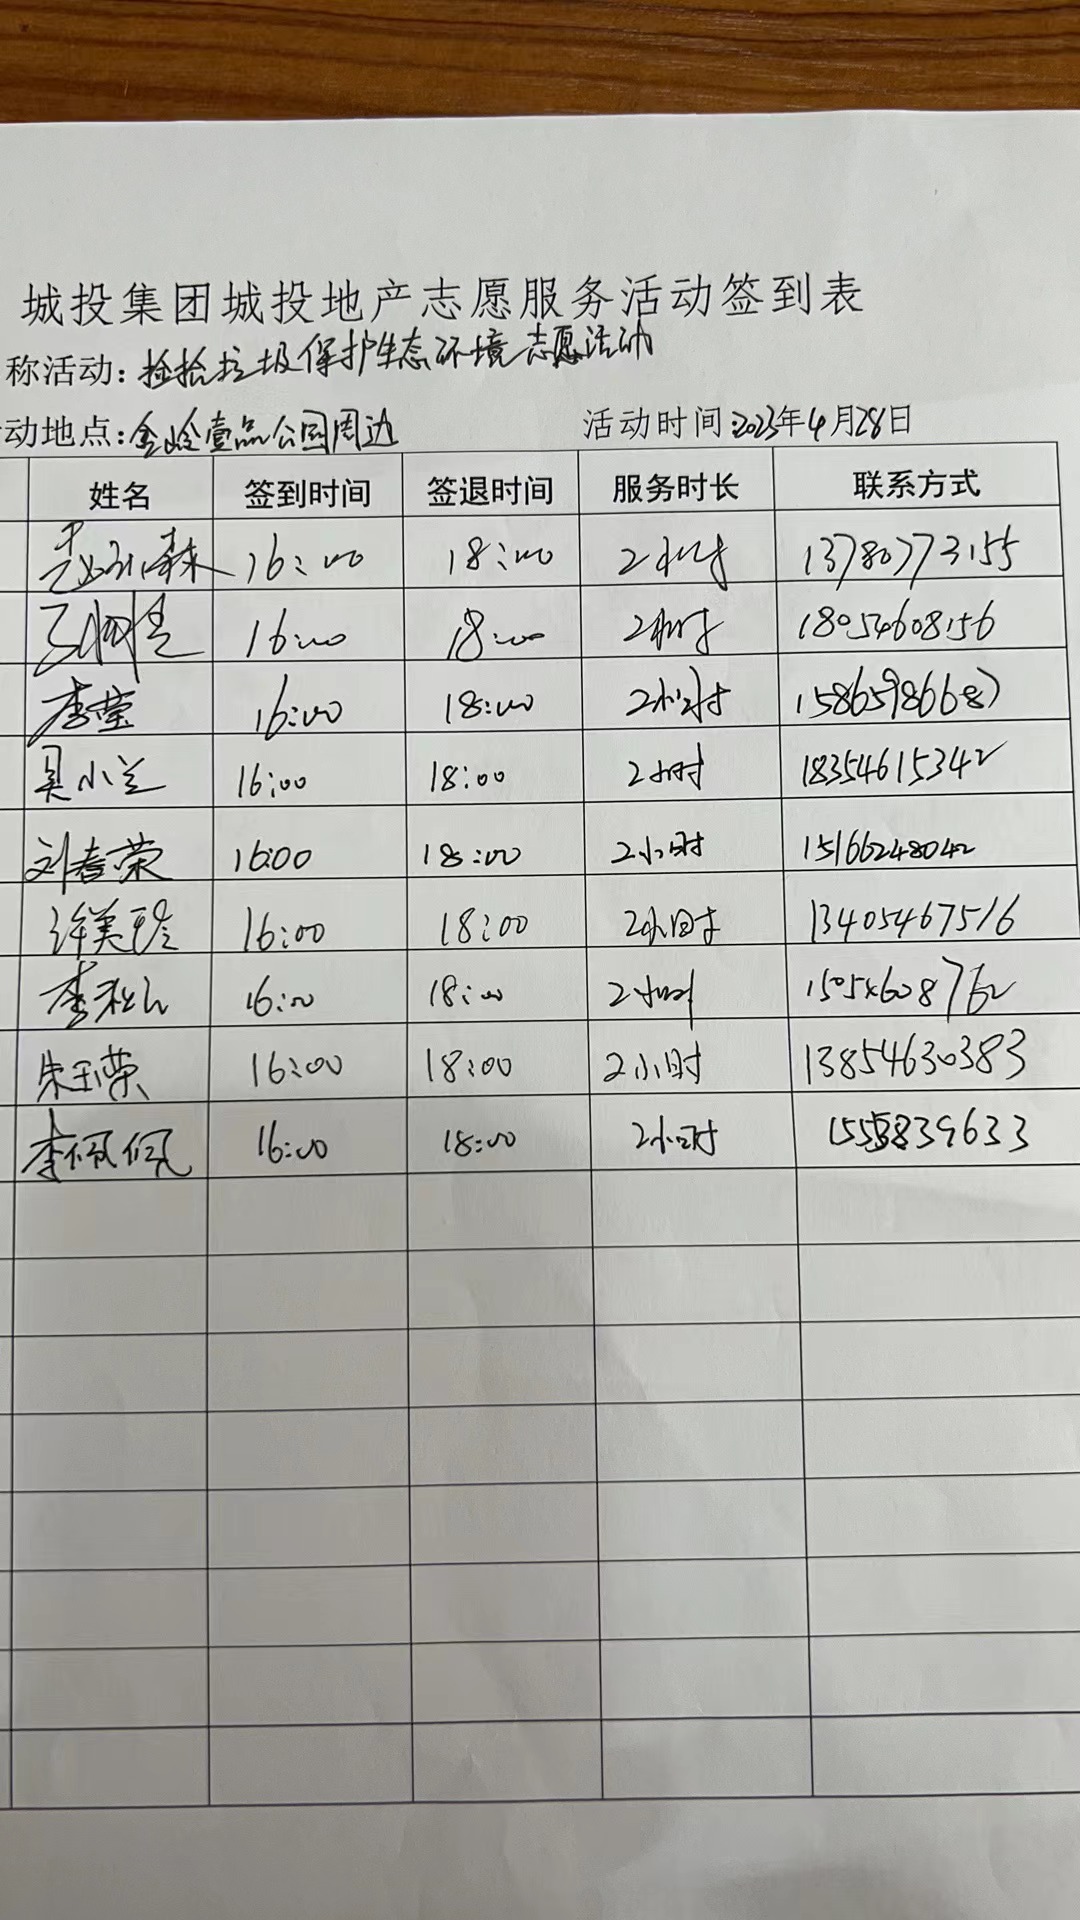 城投集团城投地产志愿服务活动签到表
称活动：捡拾垃圾保护生态环境志愿活动
动地点：金岭壹品公园周边 活动时间：2023年4月28日
姓名 签到时间 签退时间 服务时长 联系方式
16:00 18:00 2小时 13780773155
16:00 18:00 2小时 18054608156
李莹 16:00 18:00 2小时 15865986687
吴小兰 16:00 18:00 2小时 18354615342
刘春荣 16:00 18:00 2小时 15166248042
许美玲 16:00 18:00 2小时 13405467516
16:00 18:00 2小时 15054608762
朱玉荣 16:00 18:00 2小时 13854630383
李佩佩 16:00 18:00 2小时